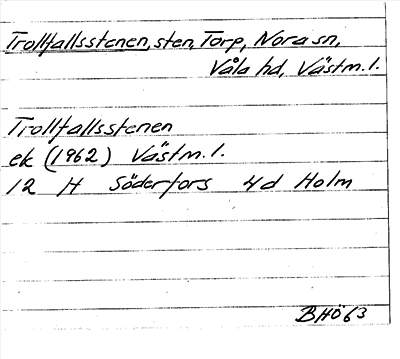 Trollfallsstenen, sten, Torp, Nora sn,
Våla hd, Västm. l.
Trollfallsstenen
ek (1962) Västm. l.
12 H Söderfors 4d Holm
BHÖ 63